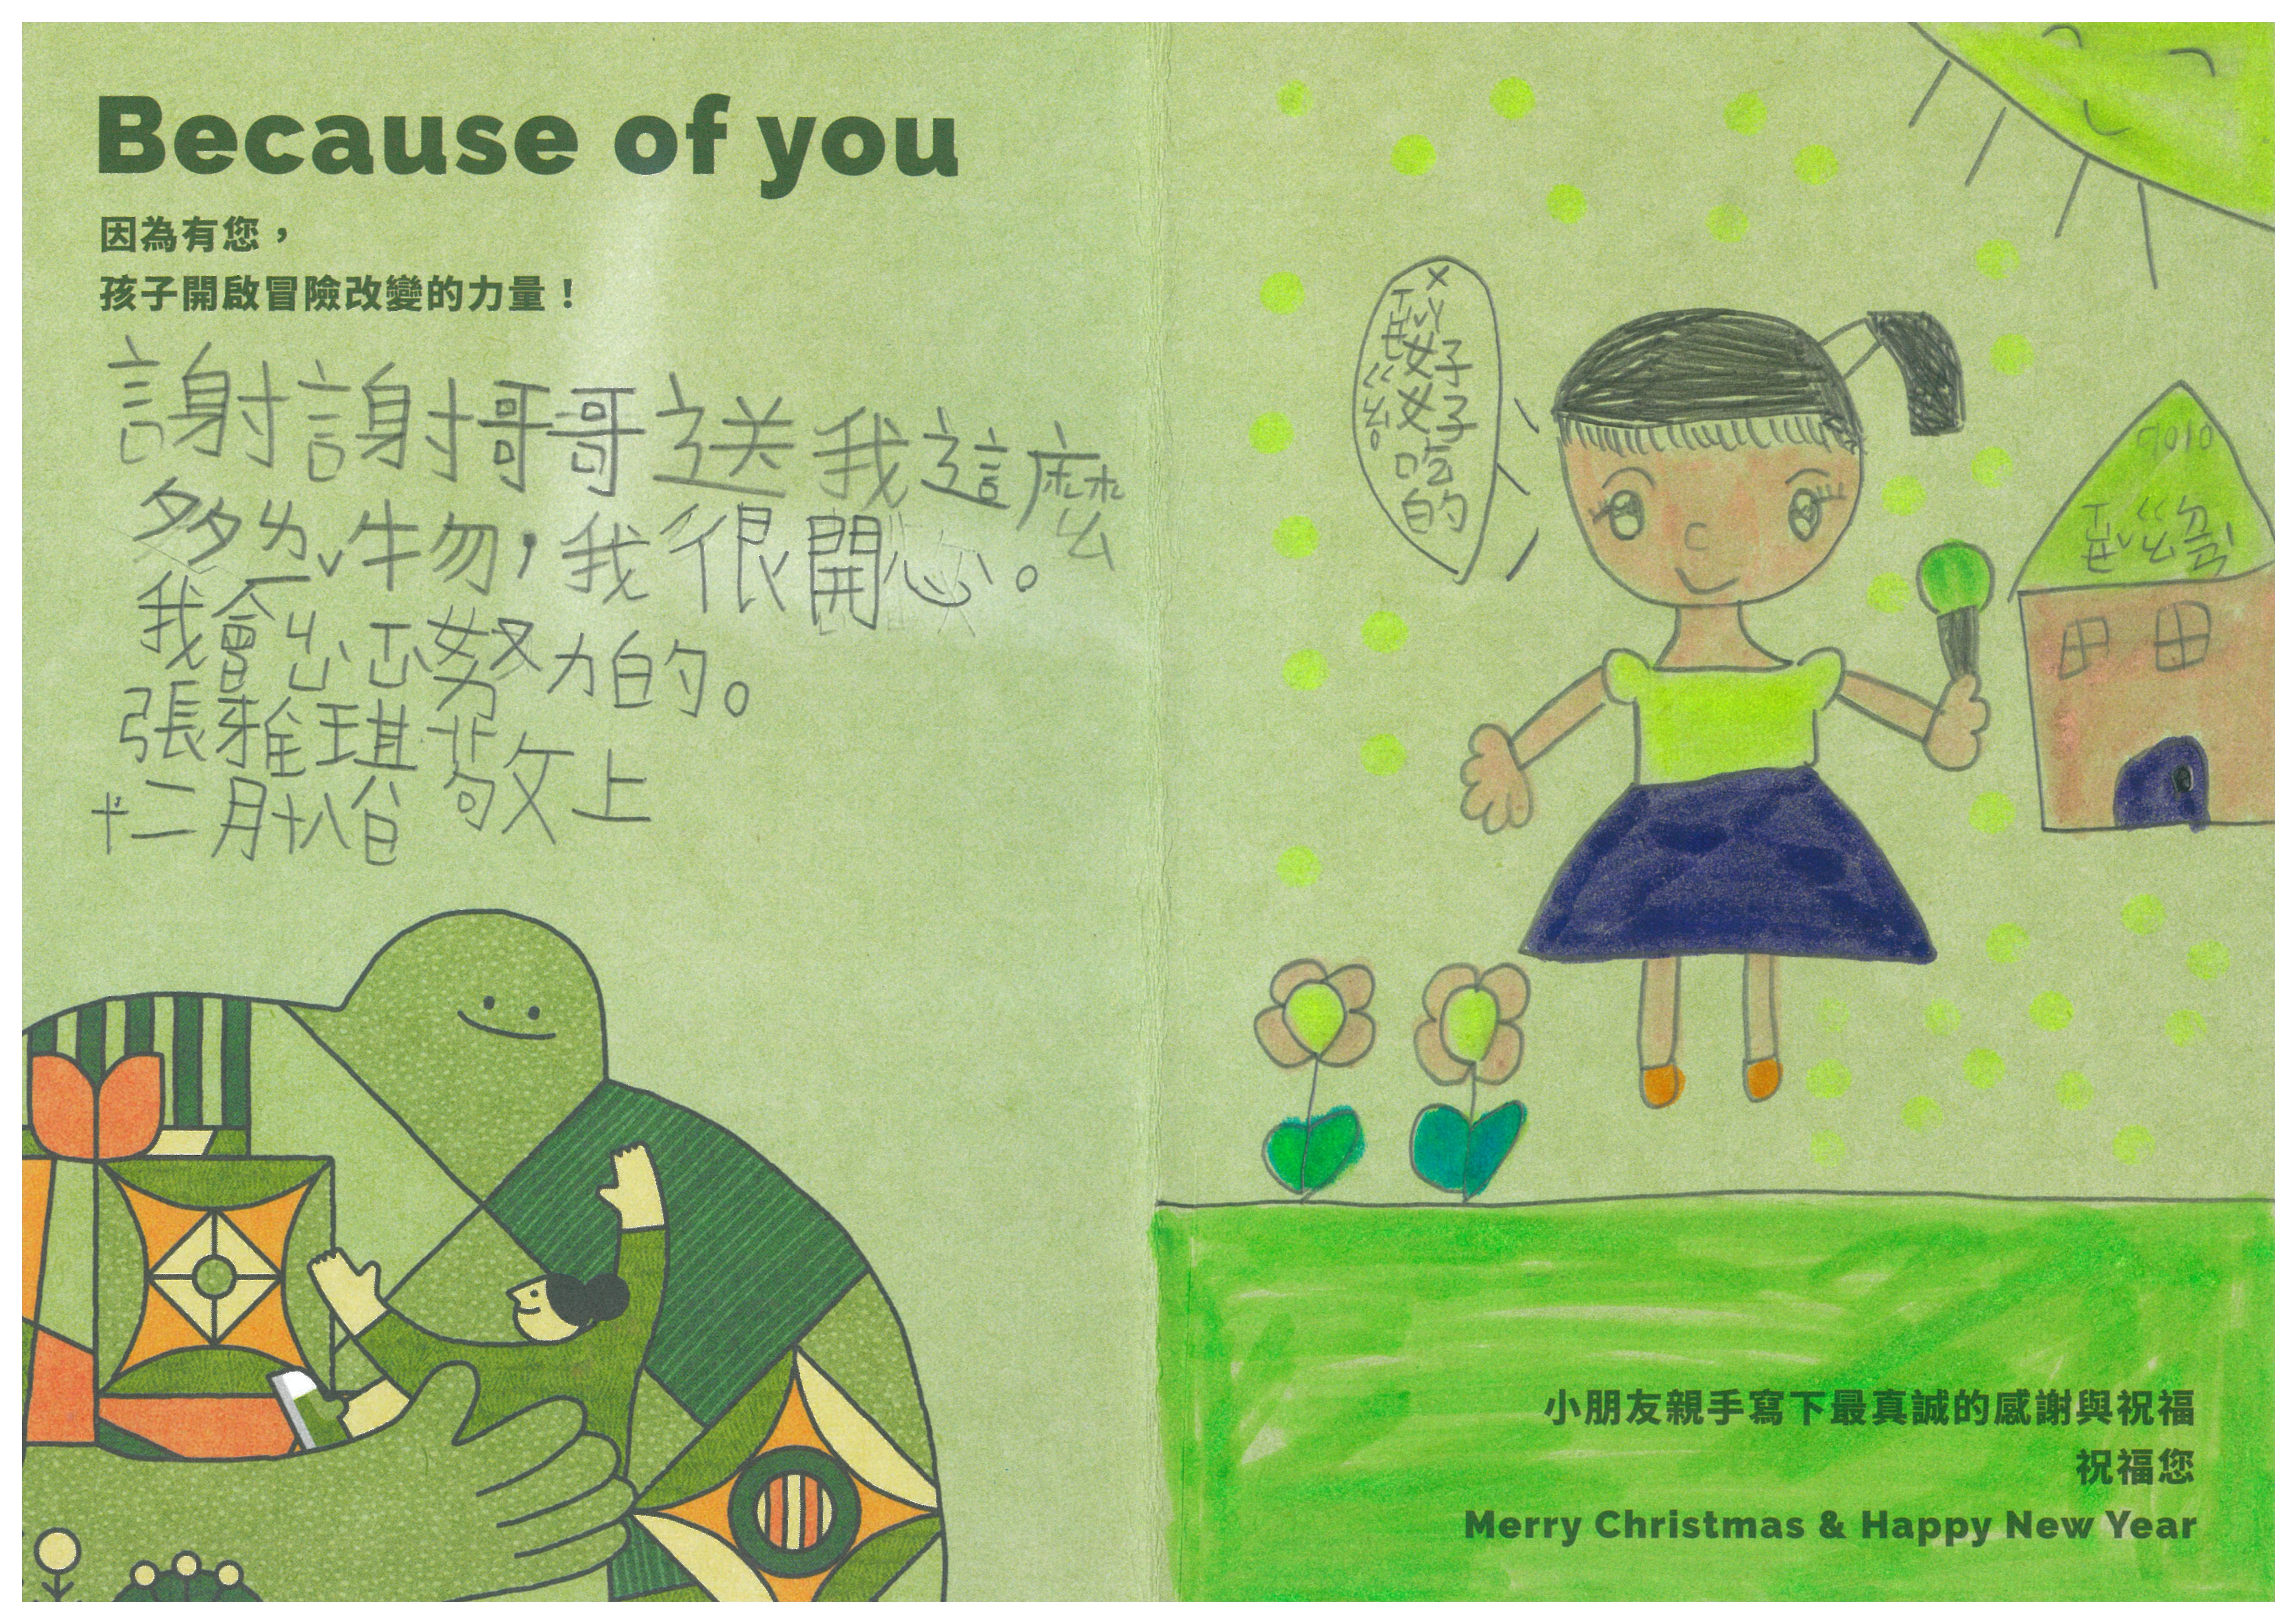 Because of you
因為有您，
孩子開啟冒險改變的力量！
謝謝哥哥送我這麼
多ㄌㄧˇ物，我很開心。
我會努力的。
張雅琪敬上
十二月十八日
好好吃的
小朋友親手寫下最真誠的感謝與祝福
祝福您
Merry Christmas & Happy New Year